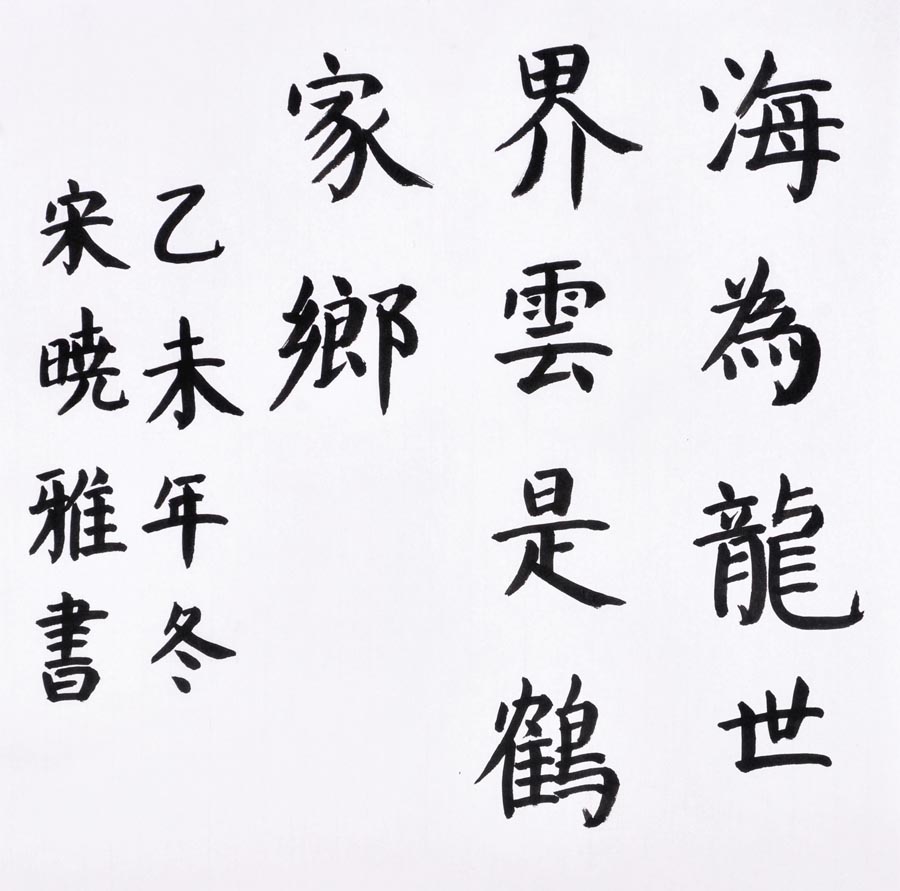 海為龍世
界雲是鶴
家鄉
乙未年冬
宋曉雅書